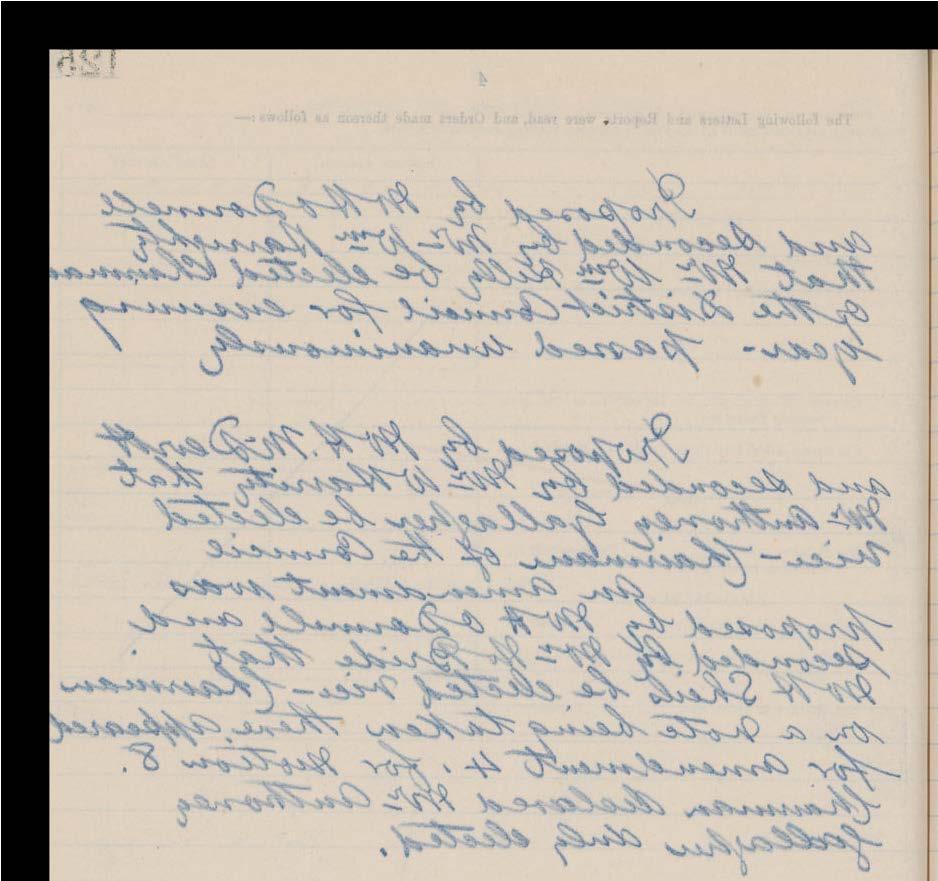 125
4
The following Letters and Reports, were read, and Orders made thereon as follows:—
Proposed by Mr H O'Donnell
and seconded by Mr Wm
that Mr Wm Kelly be elected Chairman
of the District Council for ensuing
year - passed unanimously
Proposed by Mr H. McDevitt
and seconded by Mr W that
Mr Anthony Gallagher be elected
vice-Chairman of the Council
An amendment was
proposed by Mr H O'Donnell and
seconded by Mr McBride that
Mr H Sheils be elected vice-Chairman
On a vote being taken there appeared
for amendment 4. for motion 8.
Chairman declared Mr Anthony
Gallagher duly elected.